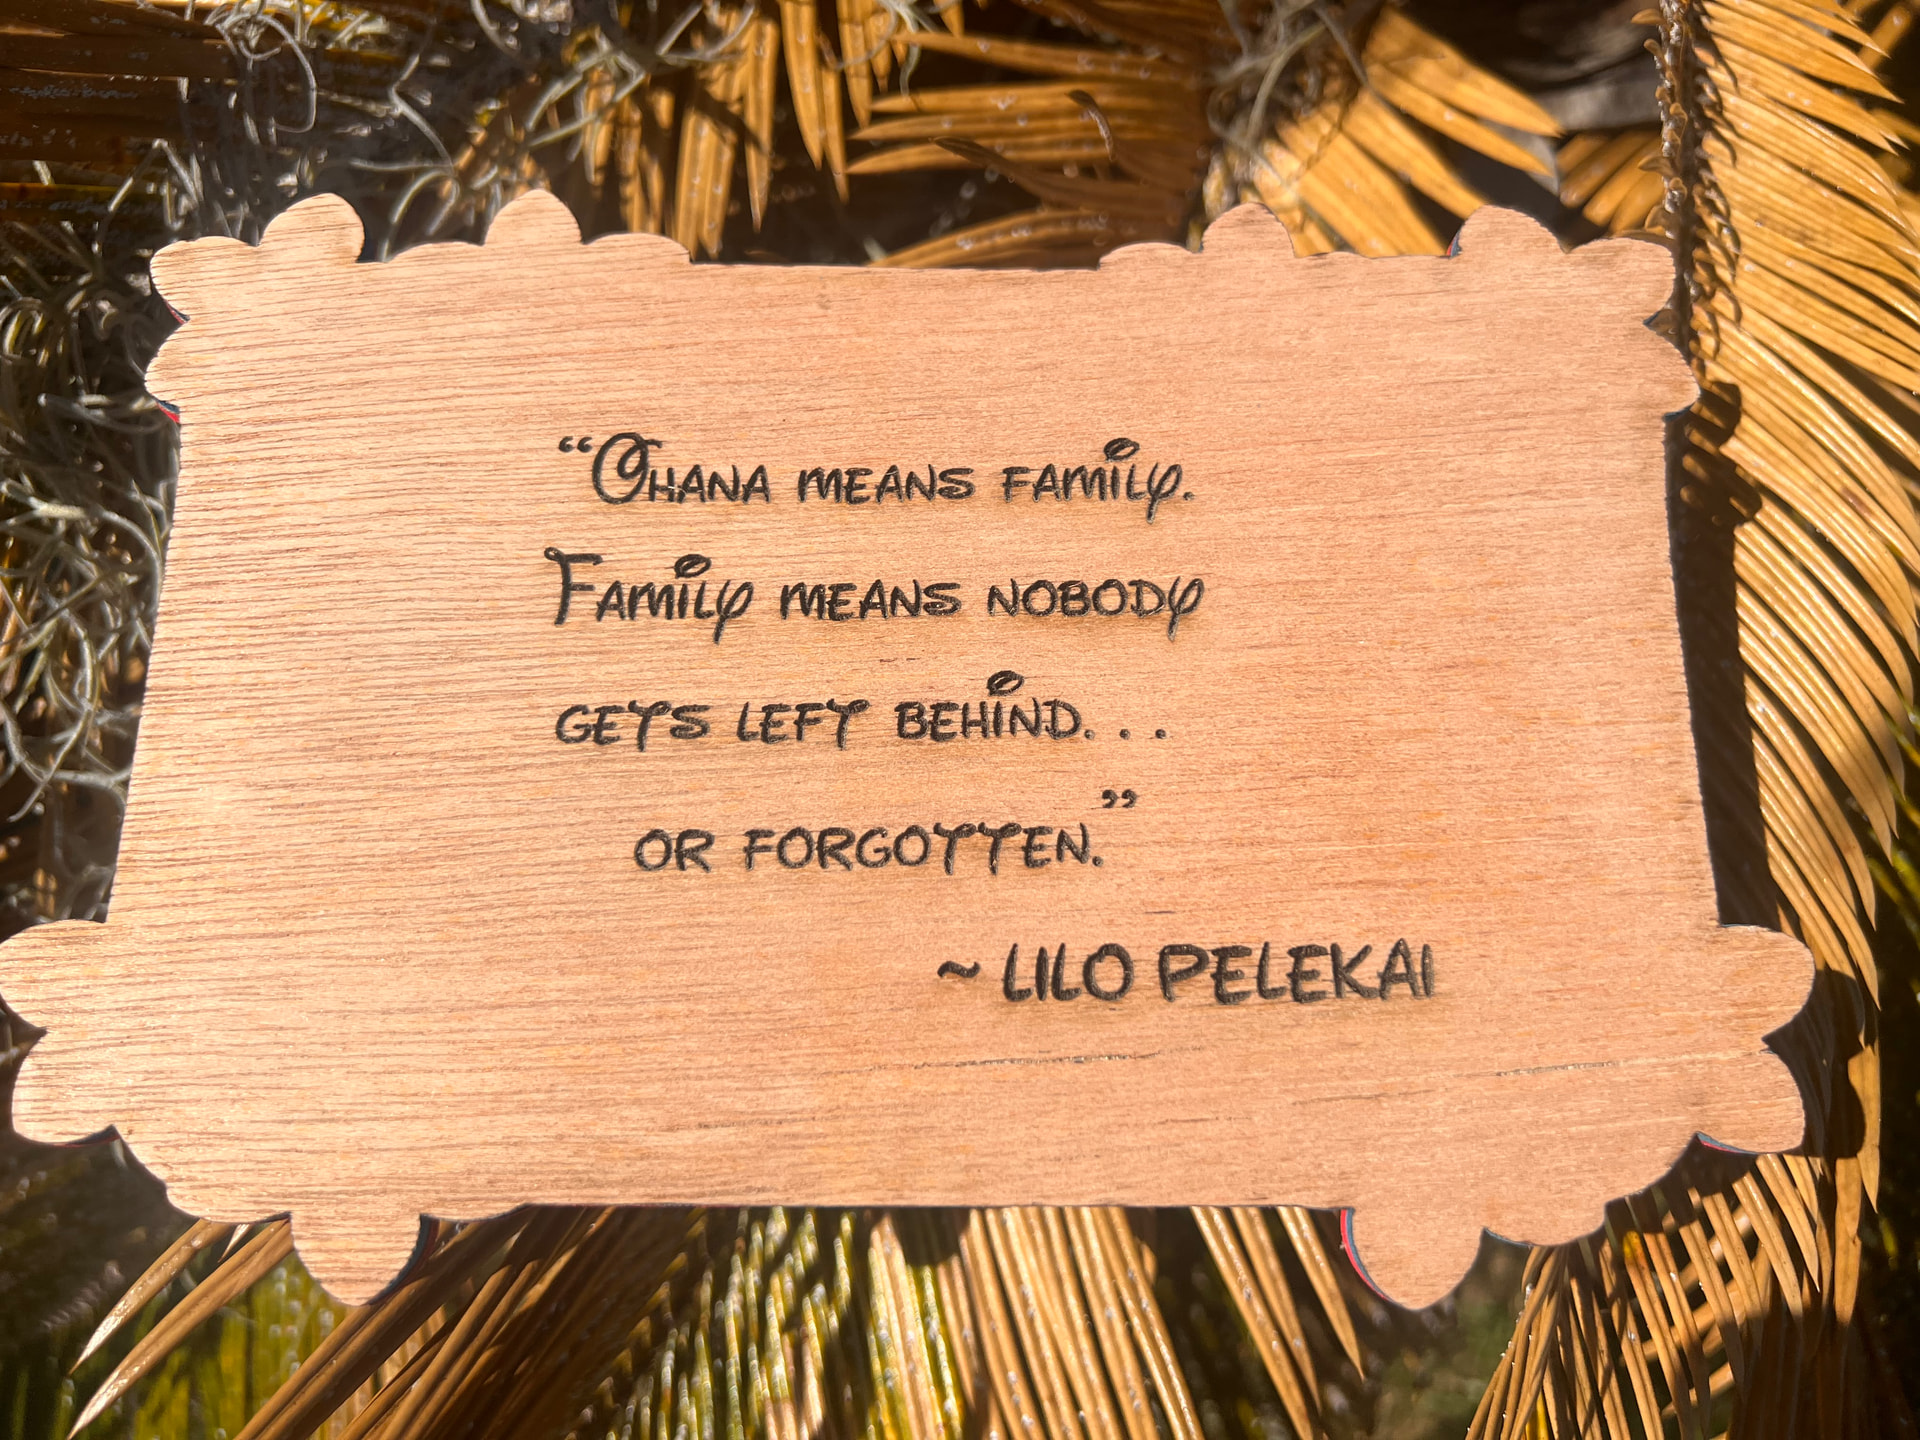 “Ohana means family.
Family means nobody
gets left behind...
or forgotten.”
~ LILO PELEKAI